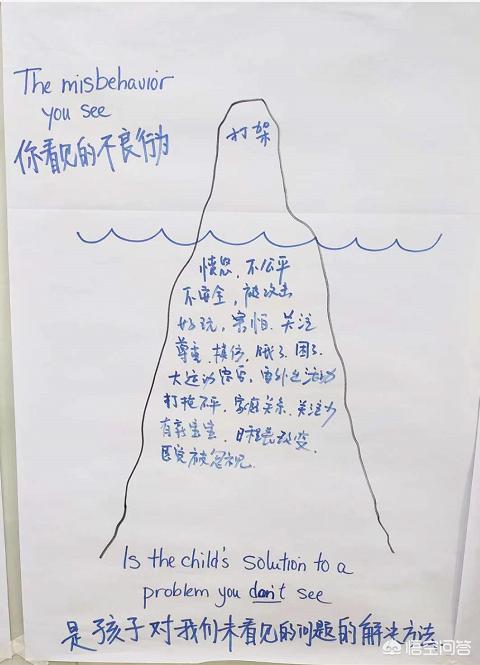 The misbehavior
you see
你看见的不良行为
打架
愤怒、不公平
不安全，被攻击
好玩、害怕、关注
尊重、模仿、饿了、困了
大运动需要，室外运动
打抱不平、家庭关系、关注力
有新宝宝、日程表改变、
被忽视
Is the child's solution to a
problem you don't see
是孩子对我们未看见的问题的解决方法
悟空问答